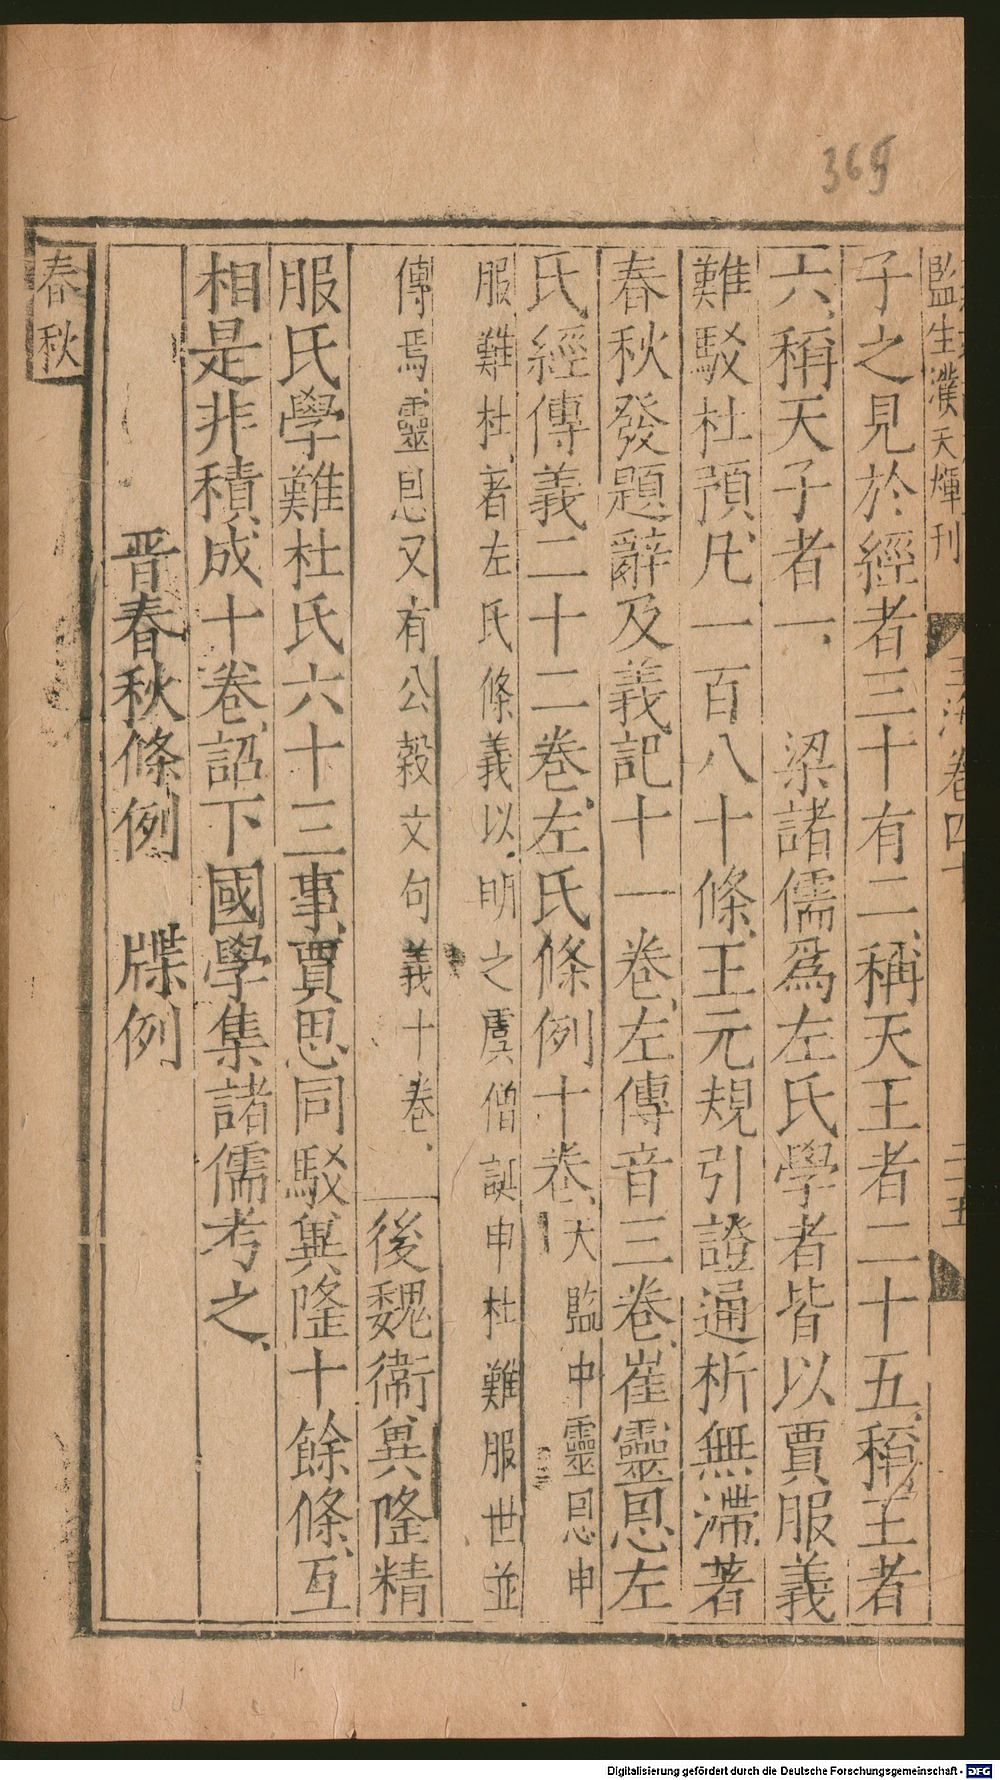 365
監生濮天輝刊
玉海卷四十
二十五
子之見於經者三十有二稱天王者二十五稱王者
六稱天子者一　梁諸儒爲左氏學者皆以賈服義
難駁杜預凡一百八十條王元規引證通析無滯著
春秋發題辭及義記十一卷左傳音三卷崔靈恩左
氏經傳義二十二卷左氏條例十卷天監中靈恩申
服難杜著左氏條義以明之虞僧誕申杜難服世並
傳焉靈恩又有公穀文句義十卷　後魏衛兾隆精
服氏學難杜氏六十三事賈思同駁兾隆十餘條互
相是非積成十卷詔下國學集諸儒考之
晋春秋條例　牒例
春秋
Digitalisierung gefördert durch die Deutsche Forschungsgemeinschaft - DFG